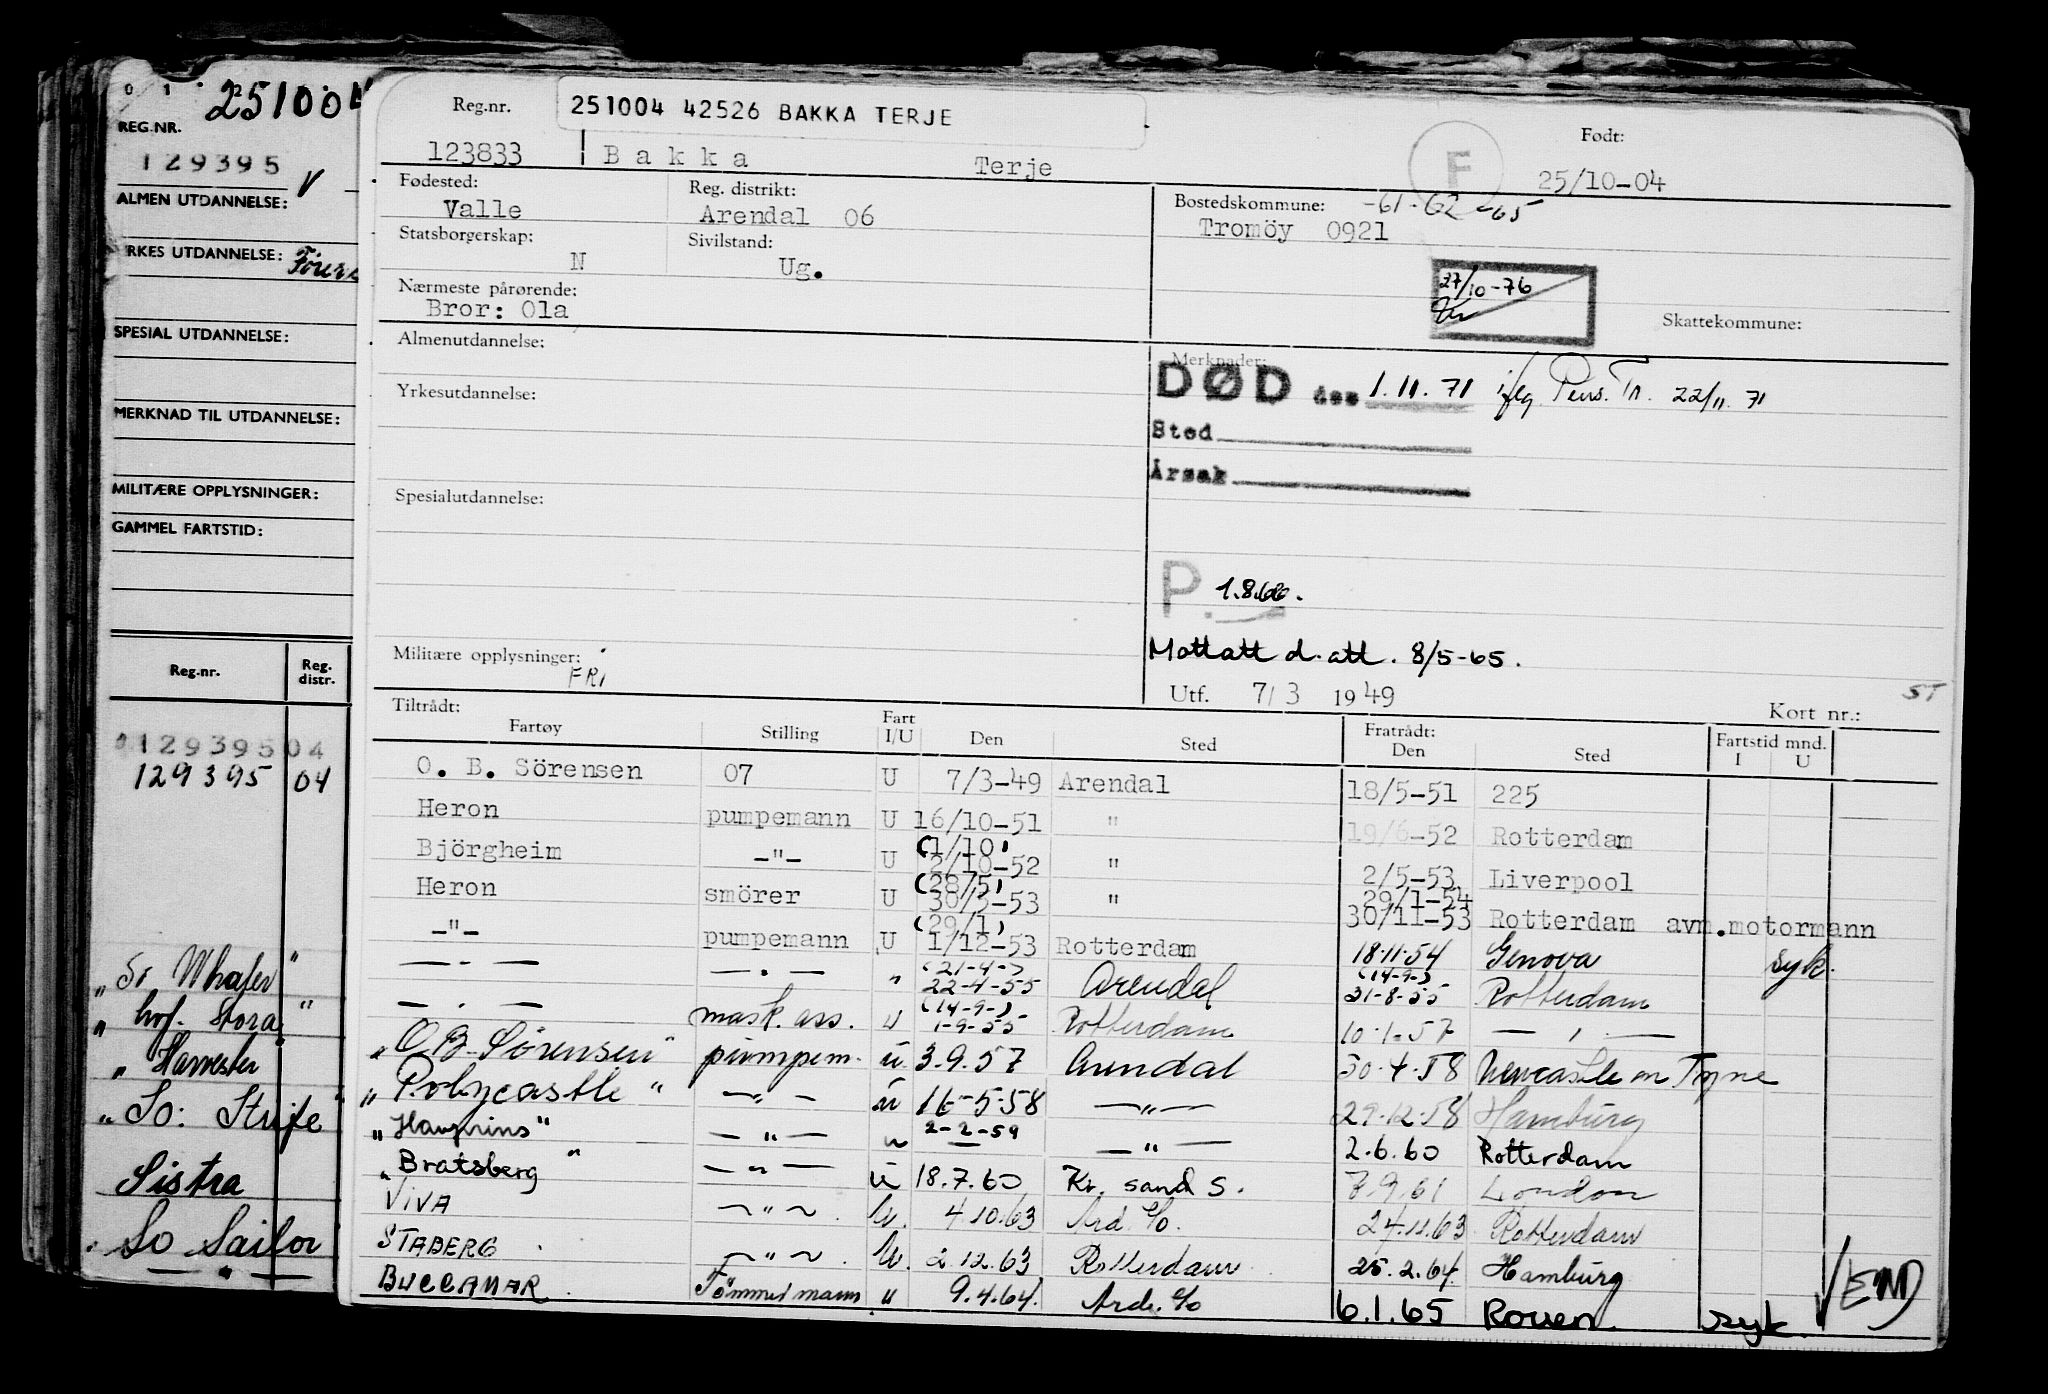 0 1 2
251004
REG.NR.
129395 V
ALMEN UTDANNELSE:
RKES UTDANNELSE:
SPESIAL UTDANNELSE:
MERKNAD TIL UTDANNELSE:
MILITÆRE OPPLYSNINGER:
GAMMEL FARTSTID:
Reg.nr. Reg. distr.
129395 04
129395 04
" hvf. Stora "
" So: Strife "
Sistra
So Sailor
Reg.nr. 251004 42526 BAKKA TERJE
Født:
123833 Bakka Terje F 25/10-04
Fødested: Reg. distrikt: Bostedskommune: -61-62-65
Valle Arendal 06 Tromöy 0921
Statsborgerskap: Sivilstand:
N Ug.
27/10-76
Nærmeste pårørende: Skattekommune:
Bror: Ola
Almenutdannelse: Merknader:
DØD den 1.11.71 iflg. Pens. Tr. 22/11.71
Yrkesutdannelse:
Sted
Årsak
Spesialutdannelse:
P. 1.8.66.
Militære opplysninger: Mottatt d. att. 8/5-65.
FRI
Utf. 7/3 1949 ST
Kort nr.:
Tiltrådt: Fratrådt:
Fartøy Stilling Fart I/U Den Sted Den Sted Fartstid mnd. I U
O. B. Sörensen 07 U 7/3-49 Arendal 18/5-51 225
Heron pumpemann U 16/10-51 " 19/6-52 Rotterdam
Björgheim -"- U (1/10) 2/10-52 " 2/5-53 Liverpool
Heron smörer U (28/5) 30/5-53 " 29/1-54 30/11-53 Rotterdam avm.motormann
-"- pumpemann U (29/1) 1/12-53 Rotterdam 18.11.54 Genova syk.
— . — — . — " (21-4-) 22-4-55 Arendal (14-9-) 31-8-55 Rotterdam
— . — mask. ass. u (14-9-) 1-9-55 Rotterdam 10.1.57 — , —
" O.B. Sørensen " pumpem. u 3.9.57 Arendal 30.4.58 Newcastle on Tyne
" Polycastle " —"— u 16-5-58 —"— 29.12.58 Hamburg
—"— u 2-2-59 —"— 2.6.60 Rotterdam
" Bratsberg " —"— u 18.7.60 Kr. sand S. 7.9.61 London
VIVA ~"~ U. 4.10.63 Ard. c/o. 24.11.63 Rotterdam
STABERG ~"~ U. 2.12.63 Rotterdam 25.2.64 Hamburg
BUCCAMAR Tömmermann " 9.4.64. Ard. c/o 6.1.65 Rouen syk.
VEND